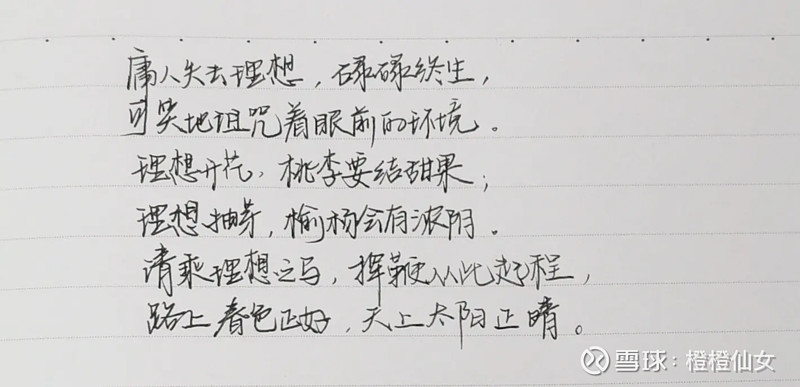 庸人失去理想，碌碌终生，
可笑地诅咒着眼前的环境。
理想开花，桃李要结甜果；
理想抽芽，榆杨会有浓阴。
请乘理想之马，挥鞭从此起程，
路上春色正好，天上太阳正晴。
雪球：橙橙仙女